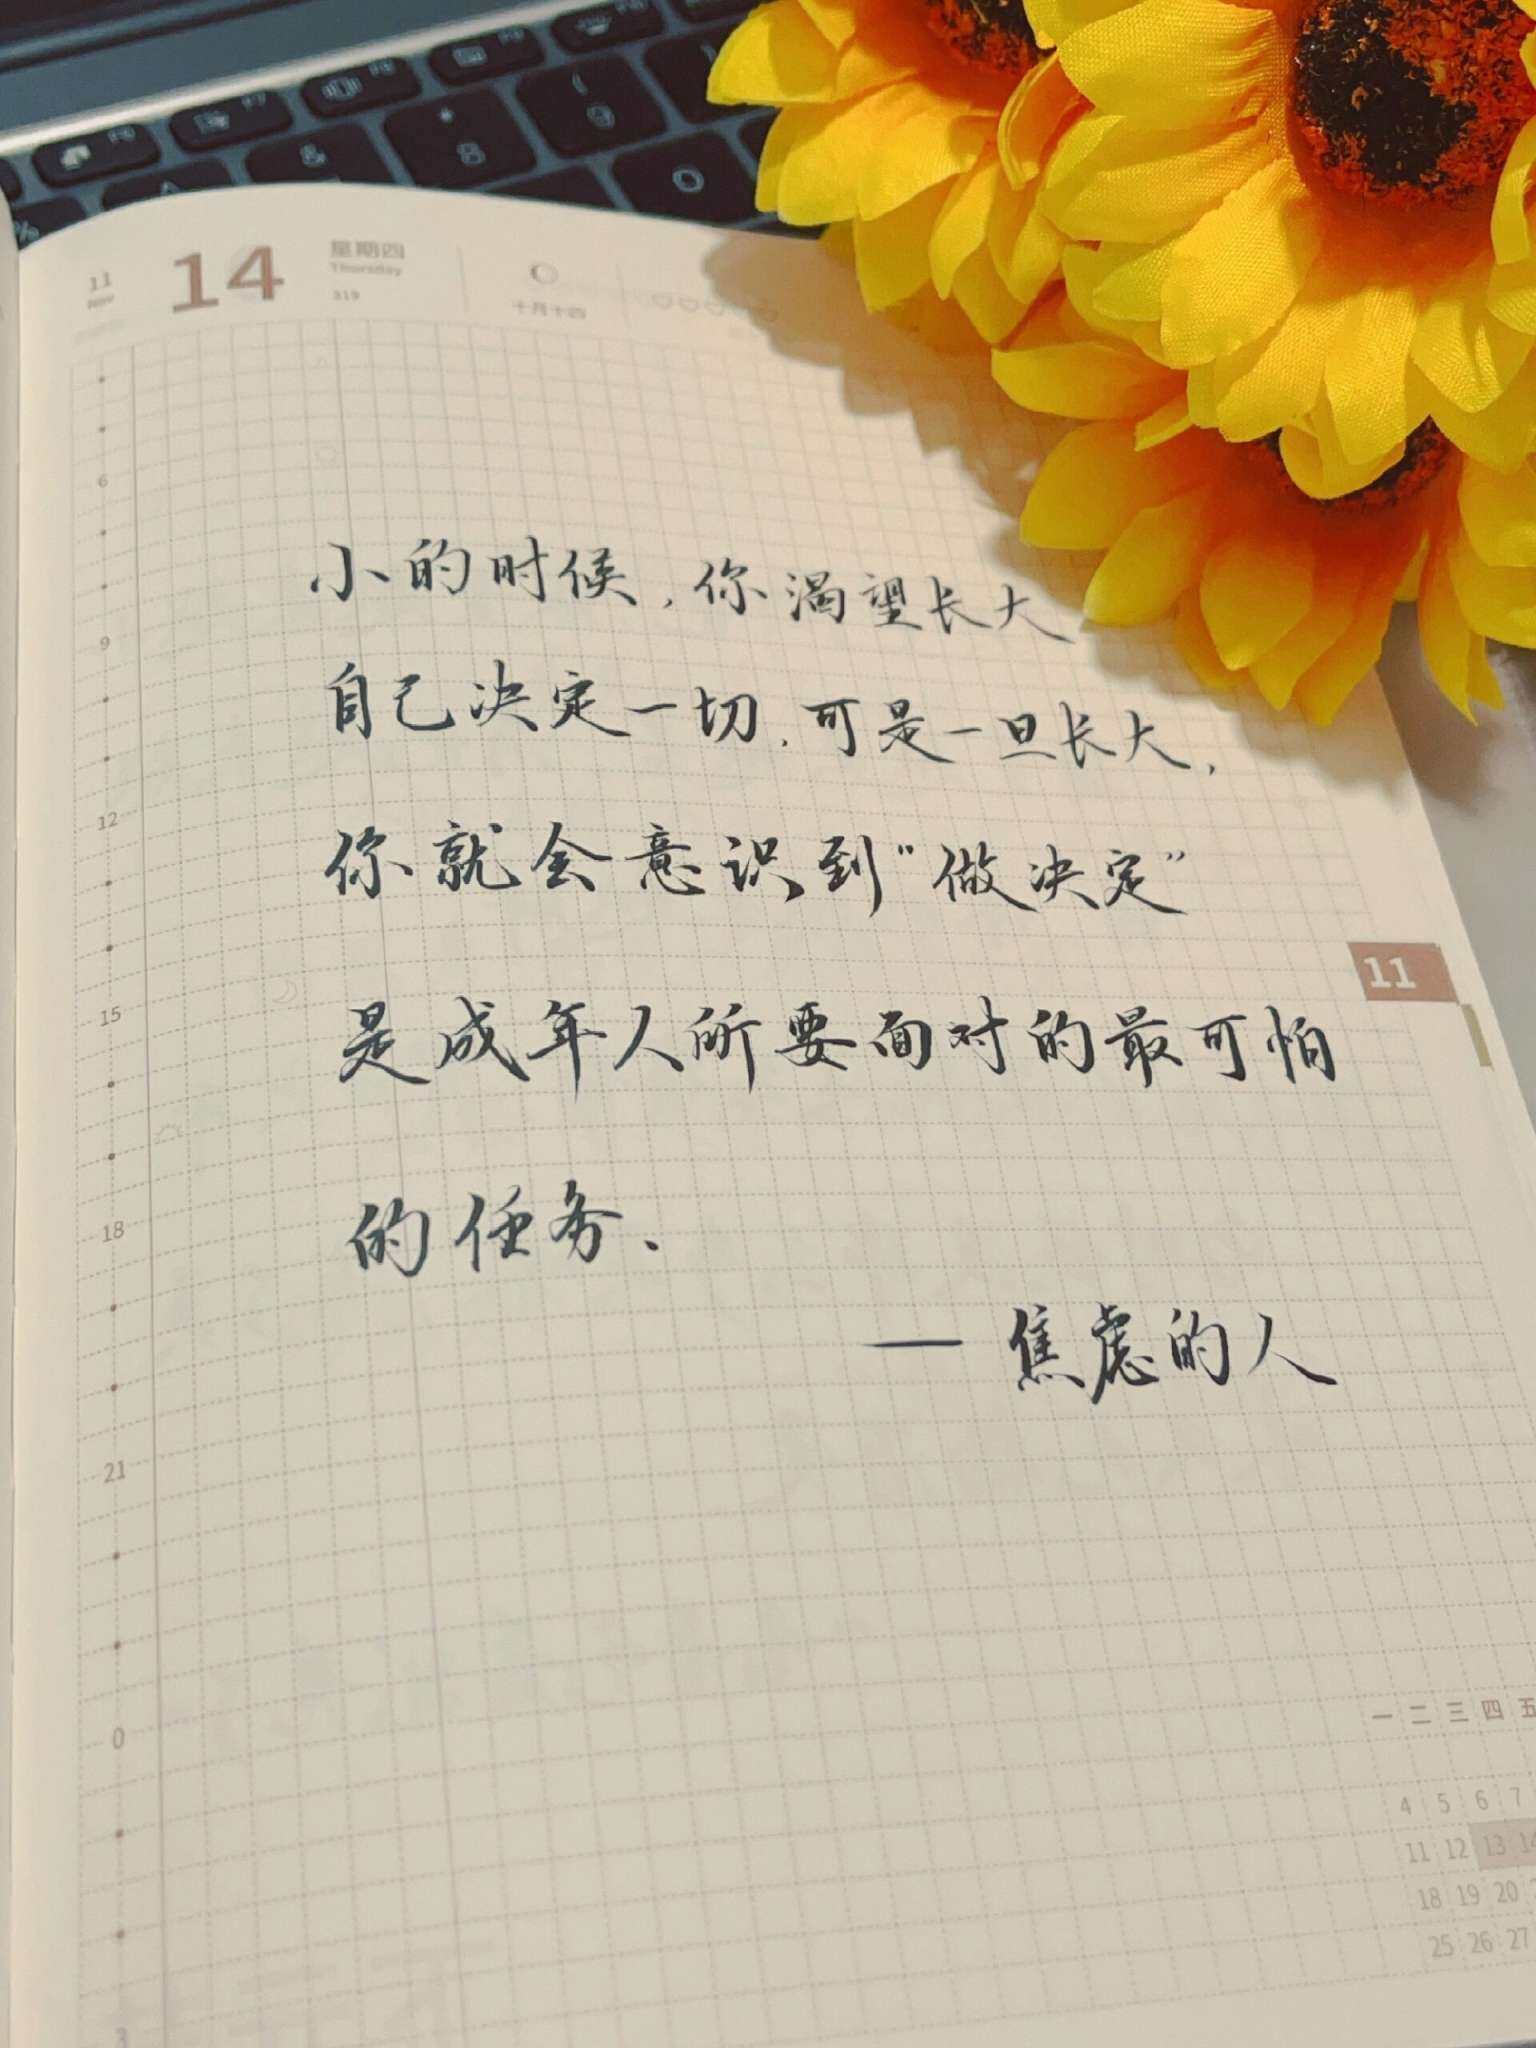 11
Nov
14
星期四
Thursday
319
十月十四
小的时候，你渴望长大
自己决定一切，可是一旦长大，
你就会意识到“做决定”
是成年人所要面对的最可怕
的任务、
— 焦虑的人
6
9
12
15
18
21
0
3
11
一 二 三 四 五
4 5 6 7
11 12 13 14
18 19 20
25 26 27
8
9
0
&